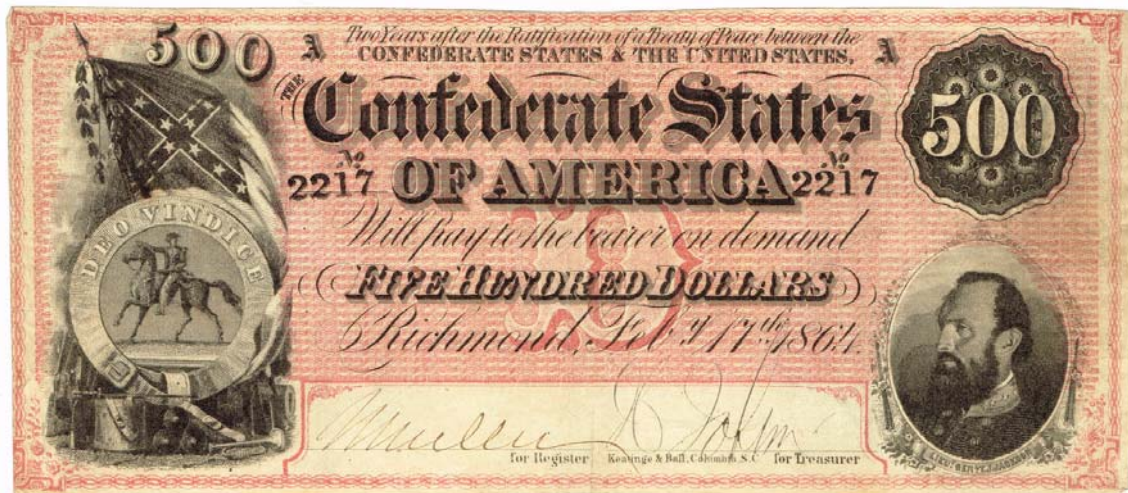 500
A Two Years after the Ratification of a Treaty of Peace between the A
CONFEDERATE STATES & THE UNITED STATES,
THE Confederate States
500
No 2217 OF AMERICA No 2217
DEO VINDICE
Will pay to the bearer on demand
FIVE HUNDRED DOLLARS
Richmond, Feby 17th 1864.
for Register Keatinge & Ball, Columbia, S.C. for Treasurer
LIEUT. GENL T.J. JACKSON